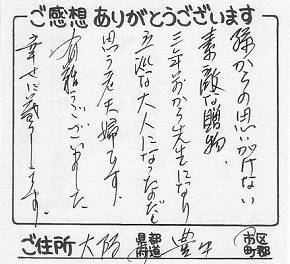 ご感想 ありがとうございます
孫からの思いがけない
素敵な贈物
三年前から先生になり
立派な大人になったなあと
思う老夫婦です。
有難うございました
幸せに暮らします。
ご住所 大阪 都道府県 豊中 市区町郡